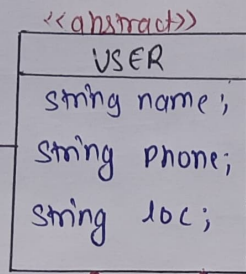 <<abstract>>
USER
string name;
string phone;
string loc;